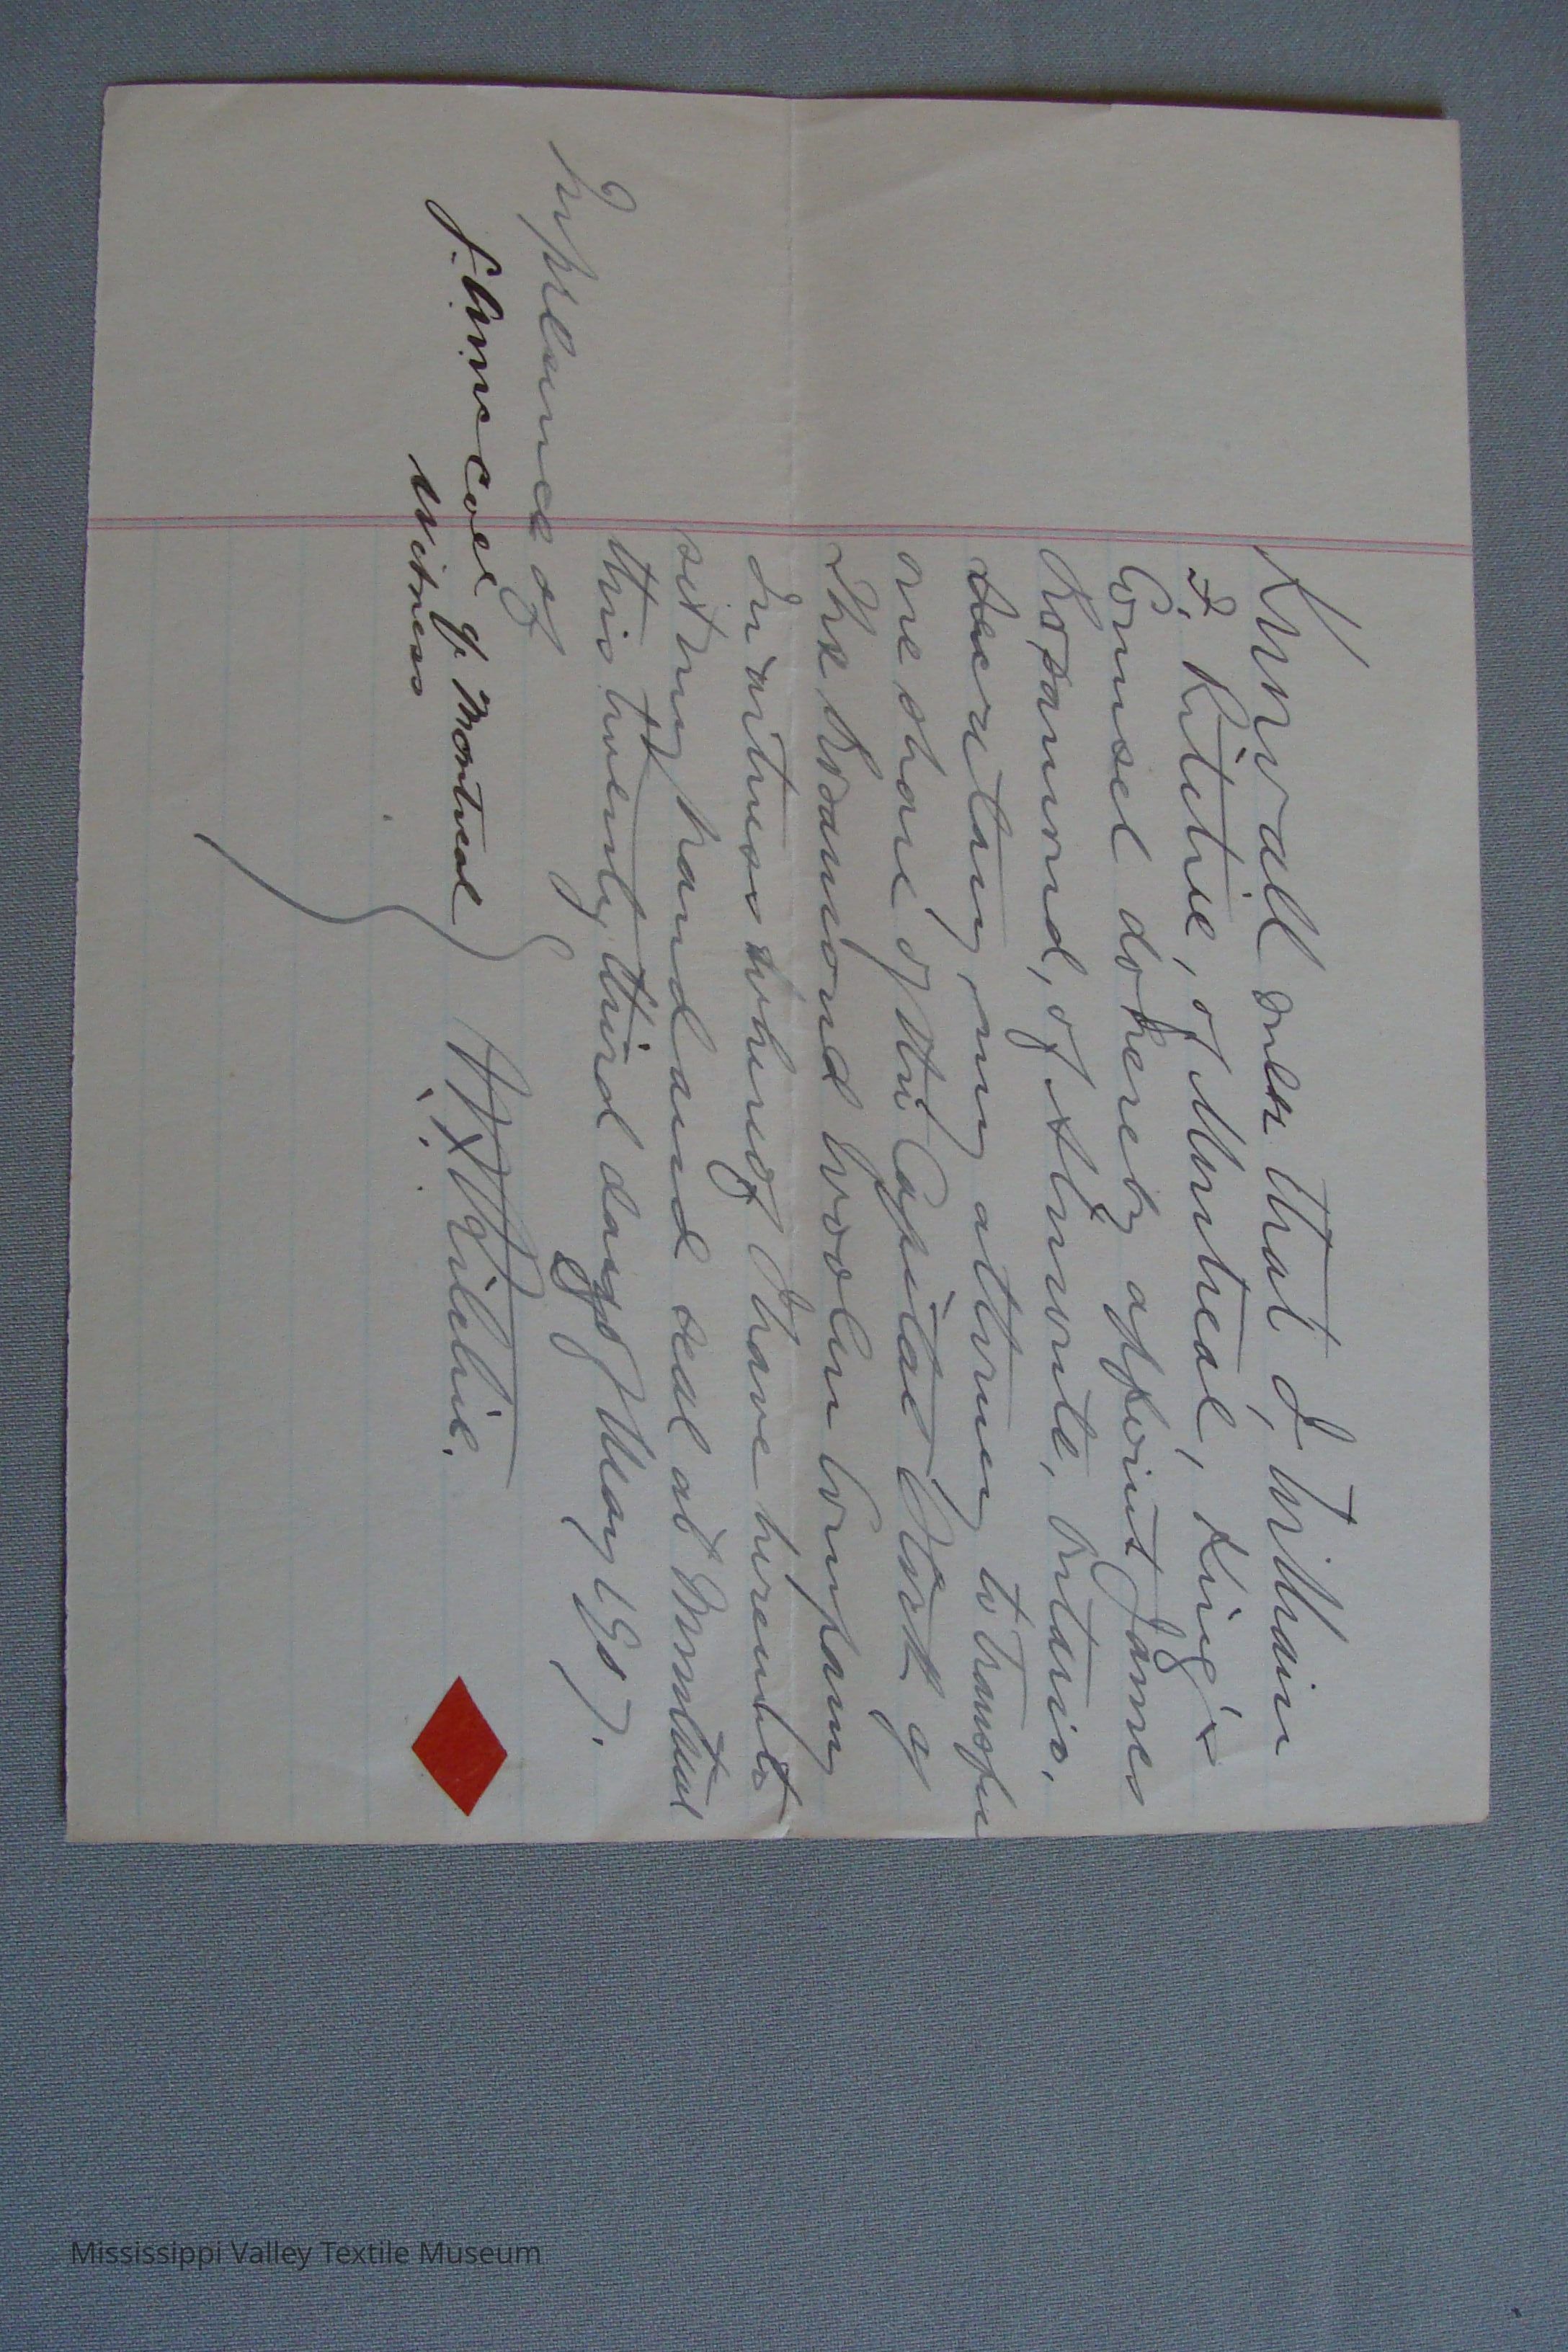 Know all men that I, William
F. Ritchie, of Montreal, King's
Counsel do hereby appoint James
Rosamond, of Almonte, Ontario,
my attorney to transfer
one share of the Capital Stock of
The Rosamond Woolen Company
In witness whereof I have hereunto
set my hand and seal at Montreal
this twenty third day of May 1907.
In presence of
of Montreal
Witness
W F Ritchie.
Mississippi Valley Textile Museum